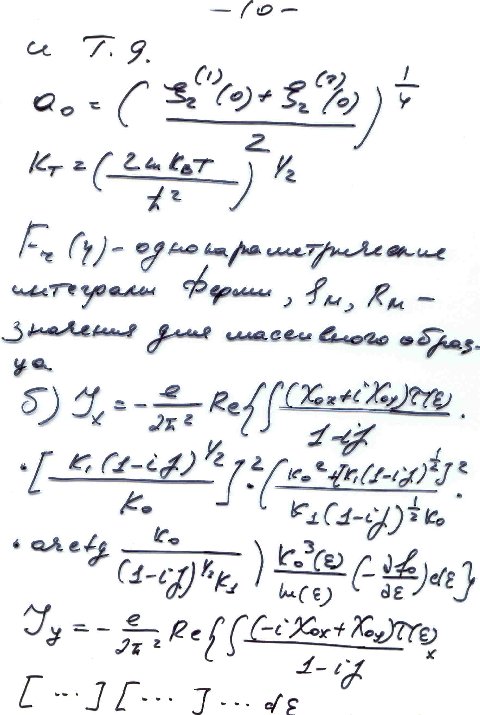 – 10 –
и т. д.
a₀ = ( (ξ₂⁽¹⁾(0) + ξ₂⁽²⁾(0)) / 2 )^(1/4)
K_T = ( 2m k_Б T / ħ² )^(1/2)
F_r(η) – однопараметрические
интегралы Ферми, ρ_м, R_м –
значения для массивного образ-
ца
б) J_x = – e/2π² Re{∫ (X₀ₓ + i X₀ᵧ)τ(ε) / (1–iγ) ·
· [ K₁(1–iγ)^(1/2) / K₀ ]·² ( (K₀² + [K₁(1–iγ)^(1/2)]²) / (K₁(1–iγ)^(1/2) K₀) ·
· arctg K₀ / ((1–iγ)^(1/2) K₁) ) K₀³(ε)/m(ε) (– ∂f₀/∂ε) dε}
J_y = – e/2π² Re{∫ (–i X₀ₓ + X₀ᵧ)τ(ε) / (1–iγ) ×
[ ... ] [ ... ] ... dε